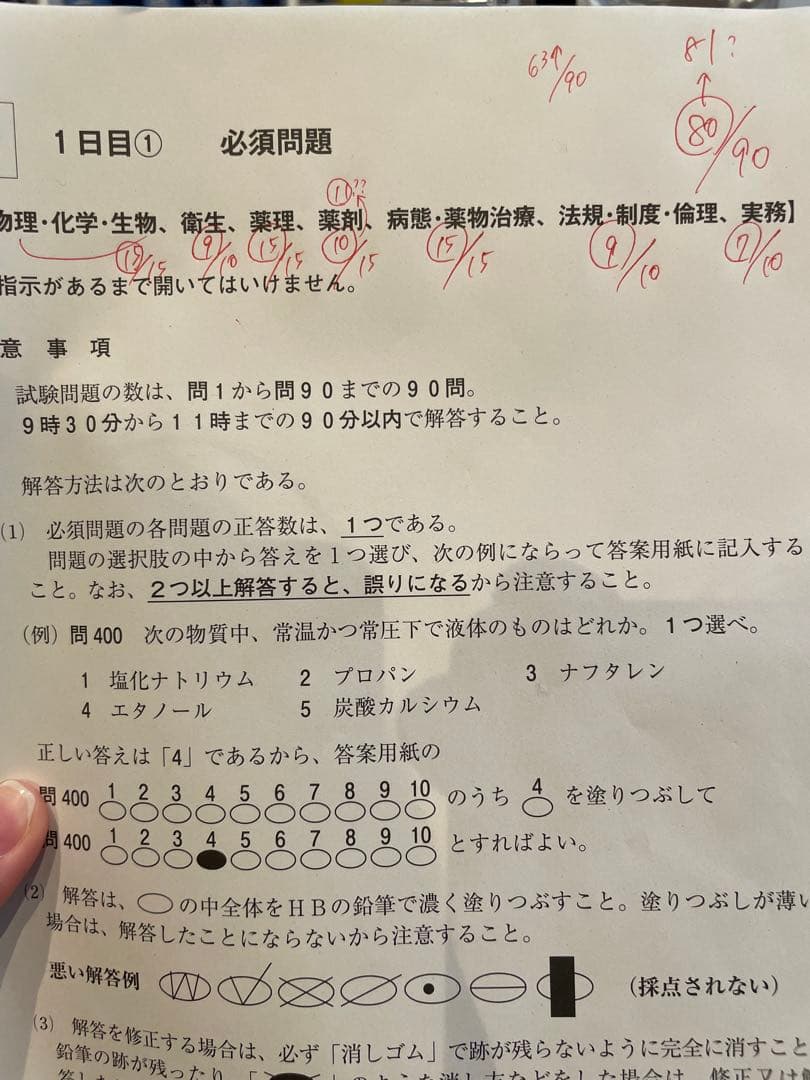 63↑/90
81?
↑
80/90
1日目① 必須問題
⑪??
物理・化学・生物、衛生、薬理、薬剤、病態・薬物治療、法規・制度・倫理、実務】
15/15 9/10 15/15 10/15 15/15 9/10 7/10
指示があるまで開いてはいけません。
意 事 項
試験問題の数は、問1から問90までの90問。
9時30分から11時までの90分以内で解答すること。
解答方法は次のとおりである。
(1) 必須問題の各問題の正答数は、1つである。
問題の選択肢の中から答えを1つ選び、次の例にならって答案用紙に記入する
こと。なお、2つ以上解答すると、誤りになるから注意すること。
(例) 問400 次の物質中、常温かつ常圧下で液体のものはどれか。1つ選べ。
1 塩化ナトリウム 2 プロパン 3 ナフタレン
4 エタノール 5 炭酸カルシウム
正しい答えは「4」であるから、答案用紙の
問400 1 2 3 4 5 6 7 8 9 10 のうち 4 を塗りつぶして
問400 1 2 3 4 5 6 7 8 9 10 とすればよい。
(2) 解答は、○の中全体をHBの鉛筆で濃く塗りつぶすこと。塗りつぶしが薄い
場合は、解答したことにならないから注意すること。
悪い解答例 (採点されない)
(3) 解答を修正する場合は、必ず「消しゴム」で跡が残らないように完全に消すこと
鉛筆の跡が残ったり、「 」のような消し方などをした場合は、修正又は